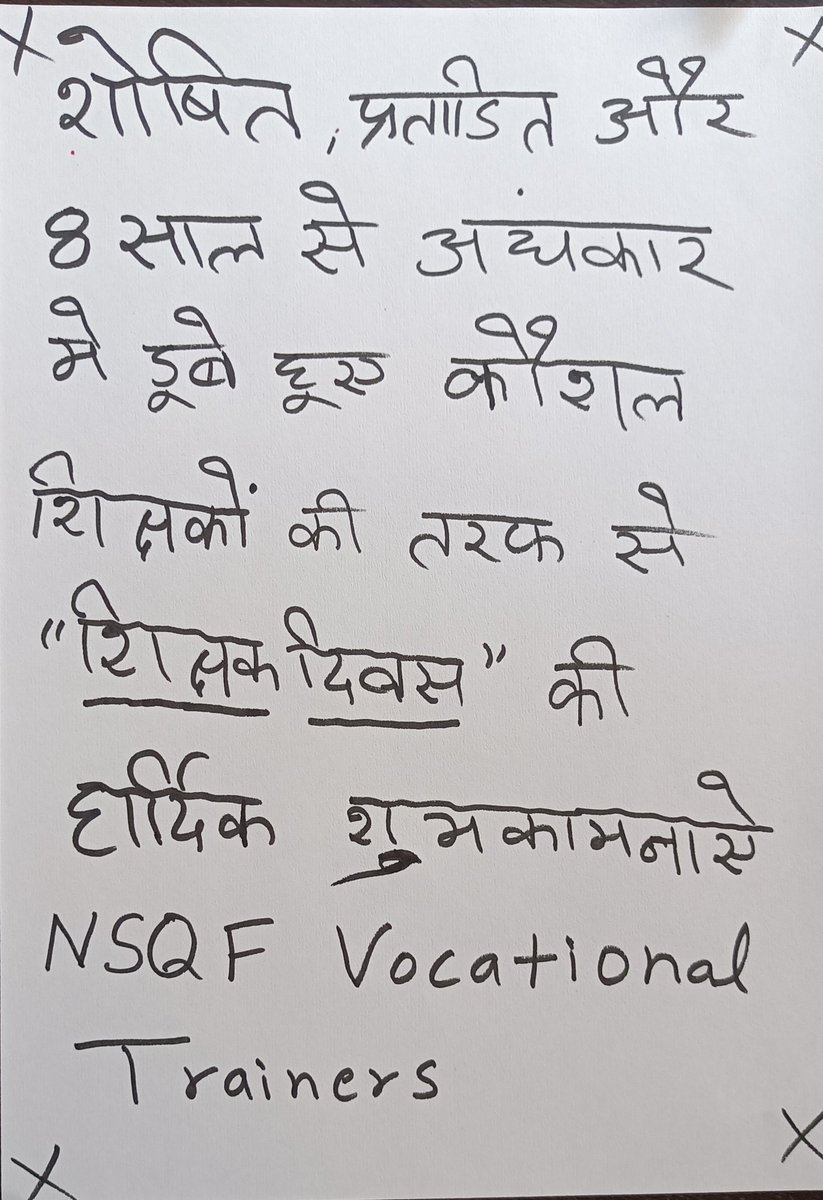 शोषित, प्रताडित और
8 साल से अंधकार
मे डूबे हूए कौशल
शिक्षकों की तरफ से
"शिक्षक दिवस" की
हार्दिक शुभकामनाऐ
NSQF Vocational
Trainers